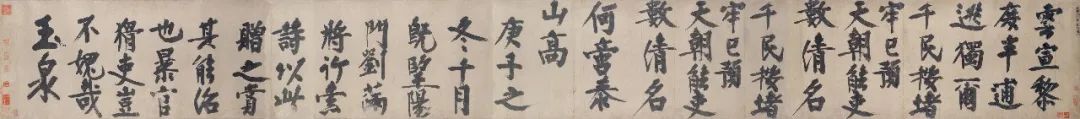 雲宣黎
庶半逋
逃獨爾
千民按堵
牢已預
天朝能吏
數清名
千民按堵
牢已預
天朝能吏
數清名
何啻泰
山高
庚子之
冬十月
既望陽
門劉滿
將行索
詩以此
贈之賞
其能治
也暴官
猾吏豈
不愧哉
玉泉